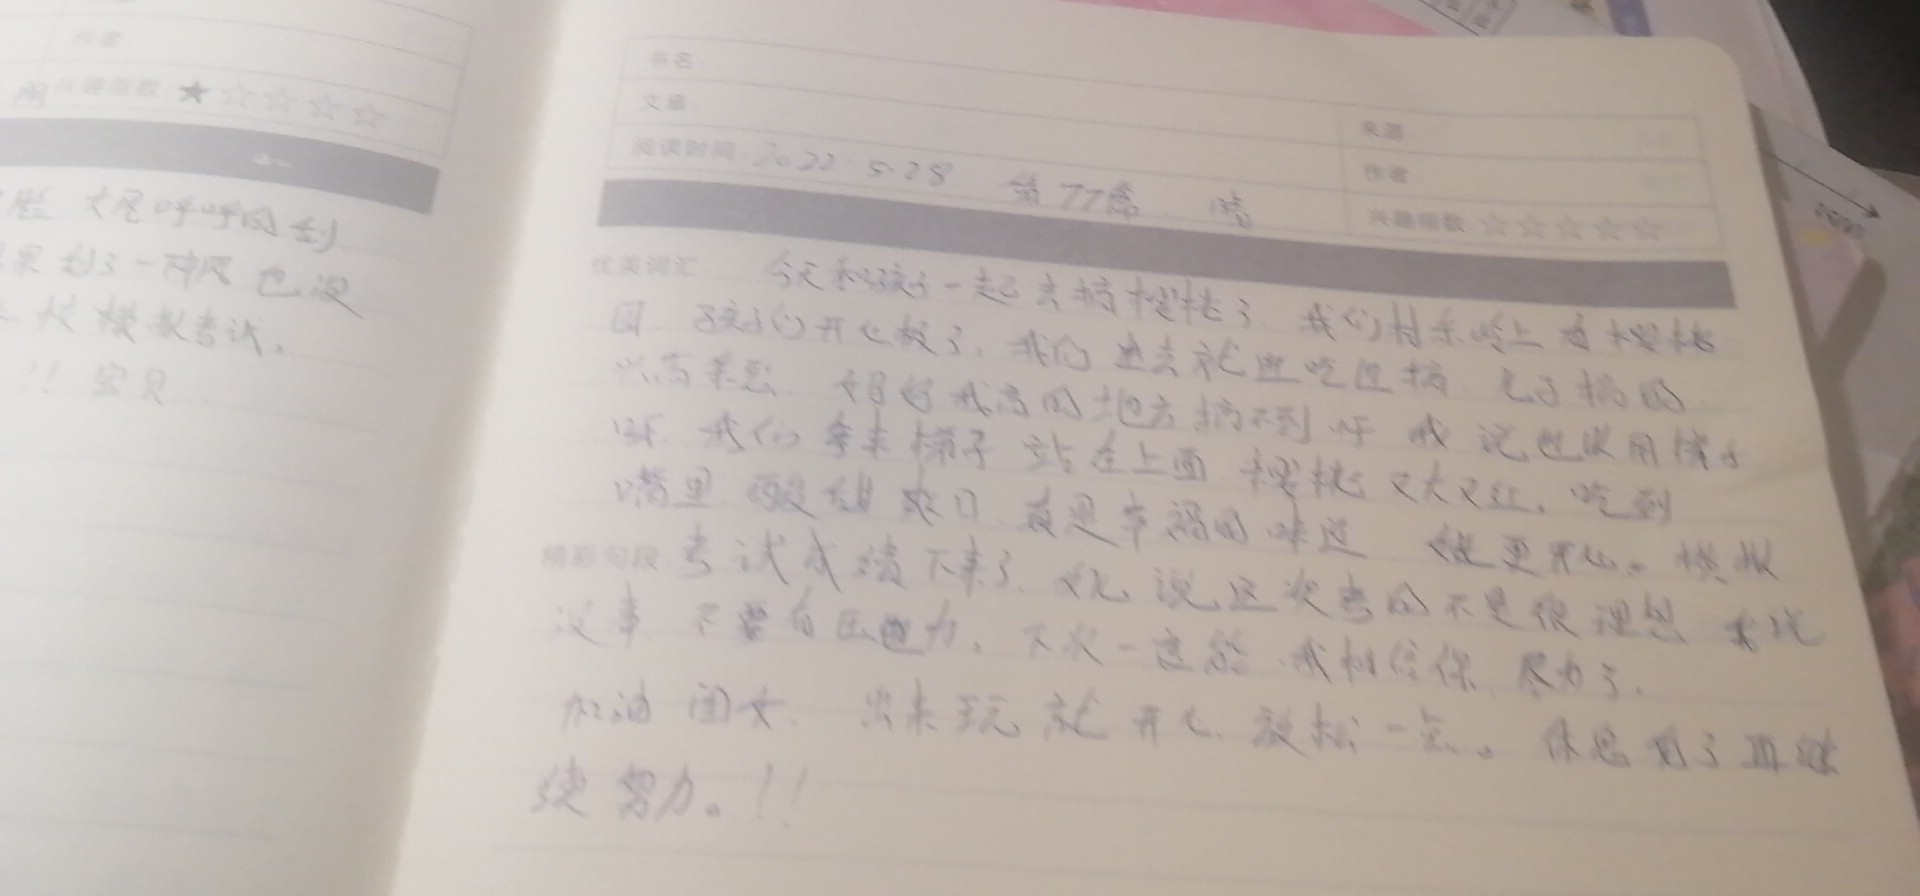 作者
兴趣指数 ★☆☆☆☆
大风呼呼的刮
一阵风 也没
模拟考试。
!! 宝贝
书名
文章
来源
阅读时间 2022 5.28 第77篇 晴
作者
兴趣指数 ☆☆☆☆☆
优美词汇 今天和孩子一起去摘樱桃了. 我们村东岭上有樱桃
园. 孩子们开心极了. 我们进去就边吃边摘
兴高采烈. 高的地方摘不到 我说可以用梯子
我们拿来梯子 站在上面 樱桃又大又红. 吃到
嘴里 酸甜爽口. 真是幸福的味道 更开心。模拟
精彩句段 考试成绩下来了. 说这次考的不是很理想 我说
没事 不要有压力. 下次一定能. 我相信你. 尽力了.
加油 闺女. 出来玩就开心 放松一点。休息好了再继
续努力。!!